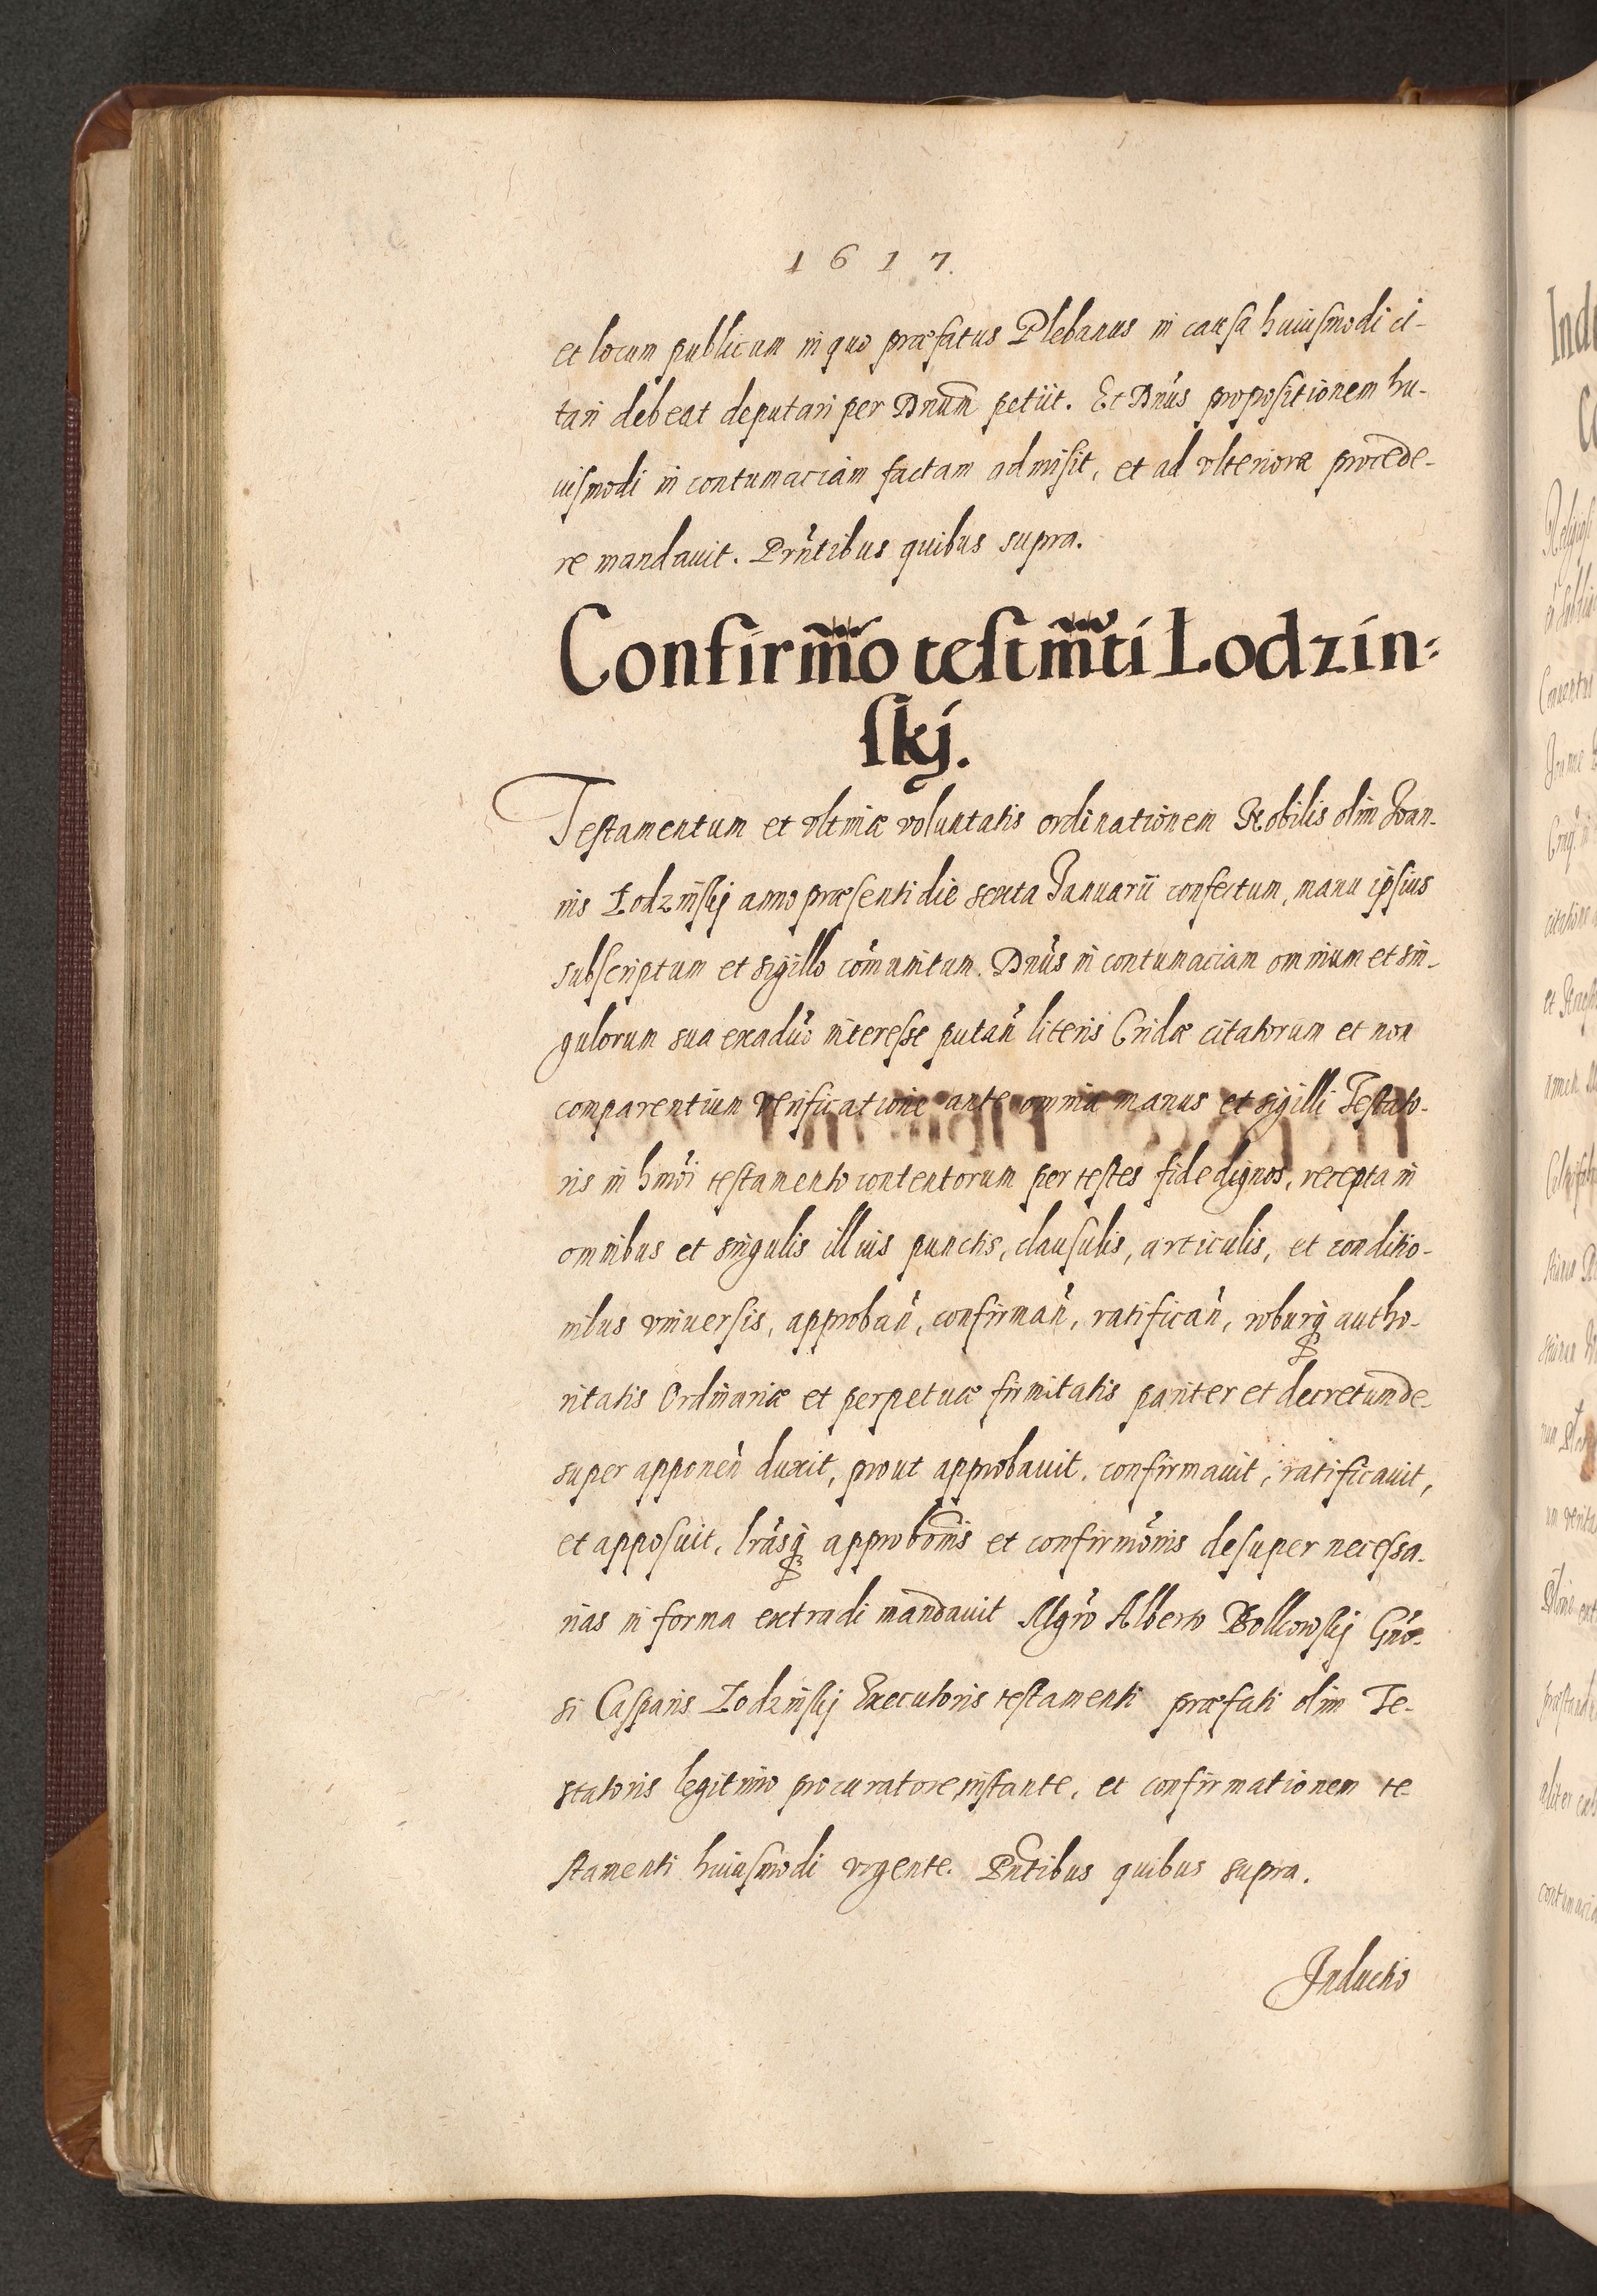 1617.
et locum publicum in quo præfatus Plebanus in causa huiusmodi ci-
tari debeat deputari per Dnum petiit. Et Dnus propositionem hu-
iusmodi in contumaciam factam admisit, et ad vlteriora procede-
re mandauit. Pntibus quibus supra.
Confirmo testmti Lodzin:
skj.
Testamentum et vltimæ voluntatis ordinationem Nobilis olim Joan-
nis Lodzinskj anno præsenti die sexta Januarii confectum, manu ipsius
subscriptum et sigillo comunitum. Dnus in contumaciam omnium et sin-
gulorum sua exaduo interesse putan literis Cridæ citatorum et non
comparentium verificatione ante omnia manus et sigilli Testato-
ris in hmoi testamento contentorum per testes fide dignos, recepta in
omnibus et singulis illius punctis, clausulis, articulis, et conditio-
nibus vniuersis, approban, confirman, ratifican, roburq autho-
ritatis Ordinariæ et perpetuæ firmitatis pariter et decretum de-
super apponen duxit, prout approbauit, confirmauit, ratificauit,
et apposuit, lrasq approbonis et confirmonis desuper necessa-
rias in forma extradi mandauit Mgro Alberto Bolkowskj Gno-
si Casparis Lodzinskj Executoris testamenti præfati olim Te-
statoris legitimo procuratore instante, et confirmationem te-
stamenti huiusmodi vrgente. Pntibus quibus supra.
Inductio